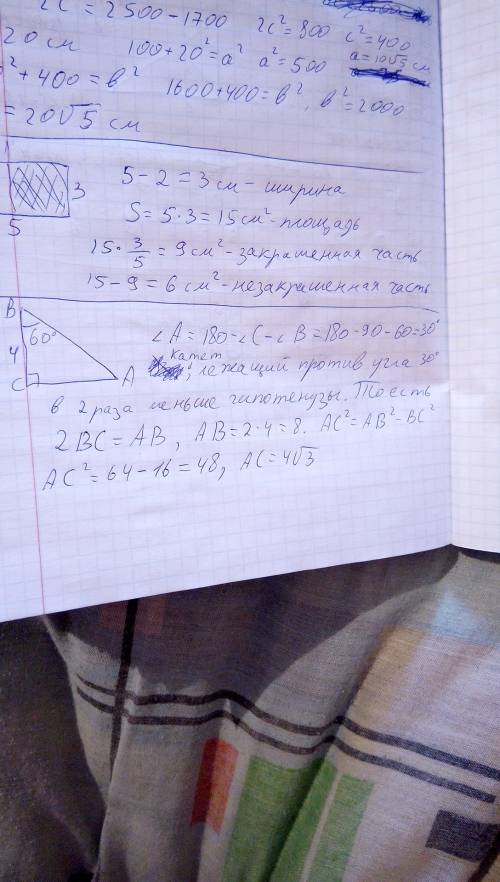 2c² = 2500-1700 2c²=800 c²=400
20 см 100+20²=a² a²=500 a=10√5 см
²+400=b² 1600+400=b², b²=2000
=20√5 см
3
5
5-2=3 см - ширина
S=5·3=15 см² - площадь
15·3/5=9 см² - закрашенная часть
15-9=6 см² - незакрашенная часть
B
60°
4
C
A
∠A=180-∠C-∠B=180-90-60=30°
катет
, лежащий против угла 30°
в 2 раза меньше гипотенузы. То есть
2BC=AB, AB=2·4=8. AC²=AB²-BC²
AC²=64-16=48, AC=4√3